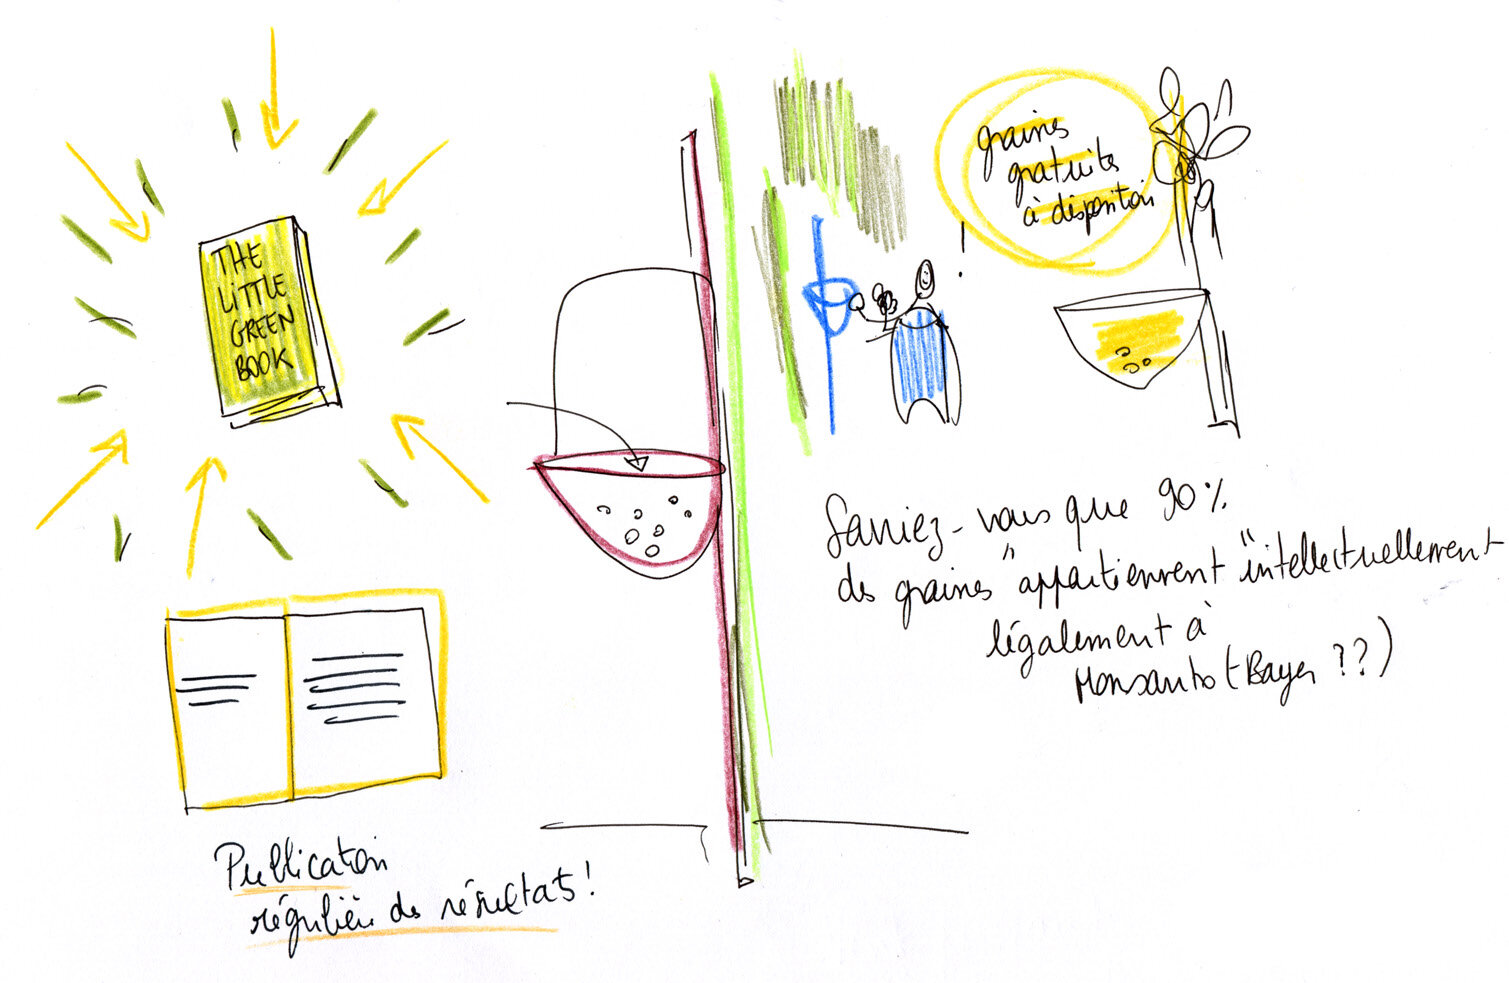 THE
LITTLE
GREEN
BOOK
Publication
régulière des résultats !
graines
gratuites
à disposition
!
Saviez-vous que 90 %
des graines "appartiennent "intellectuellement
légalement à
Monsanto (Bayer ??)